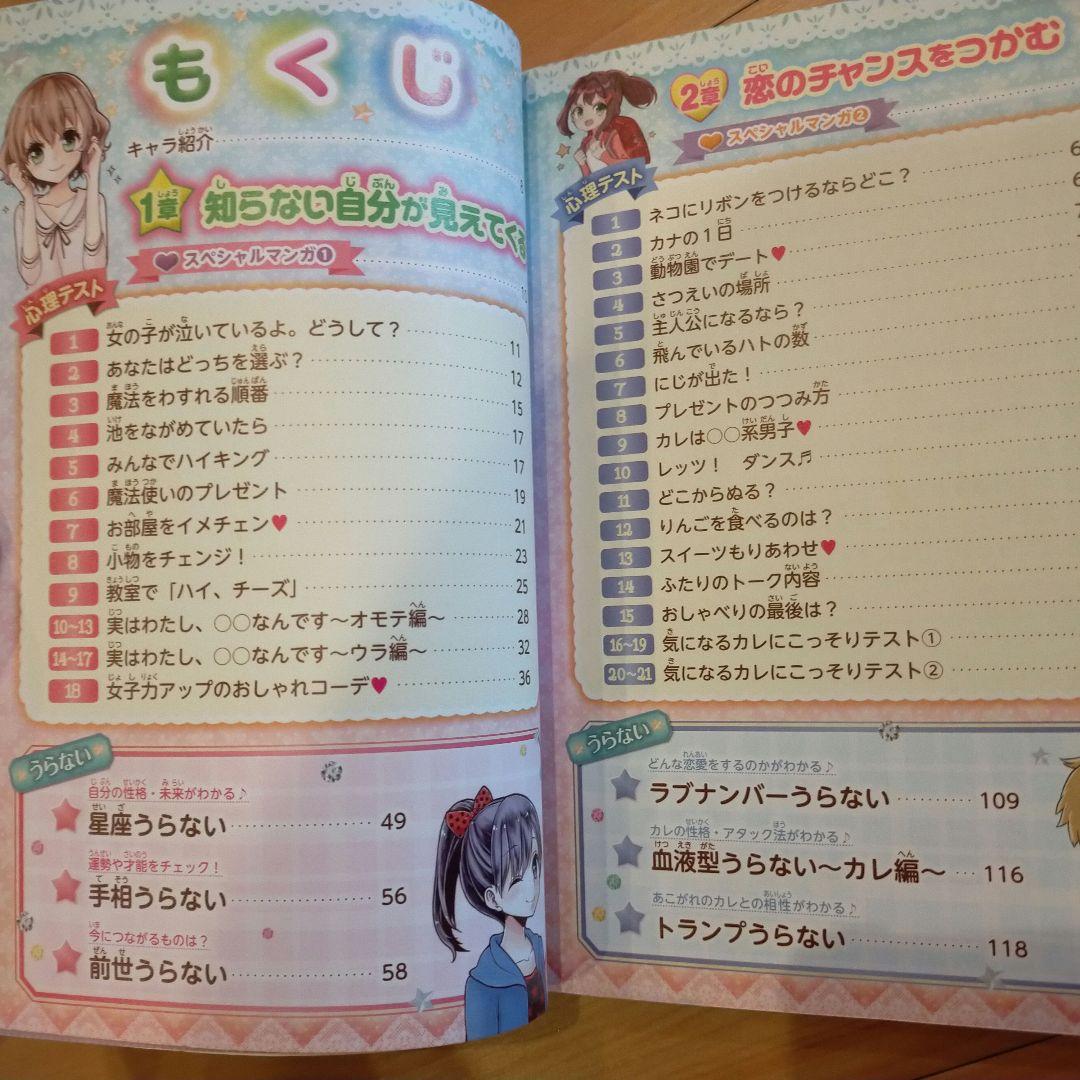 もくじ
キャラ紹介
1章 知らない自分が見えてくる
スペシャルマンガ❶
心理テスト
1 女の子が泣いているよ。どうして？ 11
2 あなたはどっちを選ぶ？ 12
3 魔法をわすれる順番 15
4 池をながめていたら 17
5 みんなでハイキング 17
6 魔法使いのプレゼント 19
7 お部屋をイメチェン♥ 21
8 小物をチェンジ！ 23
9 教室で「ハイ、チーズ」 25
10~13 実はわたし、○○なんです〜オモテ編〜 28
14~17 実はわたし、○○なんです〜ウラ編〜 32
18 女子力アップのおしゃれコーデ♥ 36
うらない
自分の性格・未来がわかる♪
星座うらない 49
運勢や才能をチェック！
手相うらない 56
今につながるものは？
前世うらない 58
2章 恋のチャンスをつかむ
スペシャルマンガ❷
心理テスト
1 ネコにリボンをつけるならどこ？
2 カナの１日
3 動物園でデート♥
4 さつえいの場所
5 主人公になるなら？
6 飛んでいるハトの数
7 にじが出た！
8 プレゼントのつつみ方
9 カレは○○系男子♥
10 レッツ！ ダンス♬
11 どこからぬる？
12 りんごを食べるのは？
13 スイーツもりあわせ♥
14 ふたりのトーク内容
15 おしゃべりの最後は？
16~19 気になるカレにこっそりテスト①
20~21 気になるカレにこっそりテスト②
うらない
どんな恋愛をするのかがわかる♪
ラブナンバーうらない 109
カレの性格・アタック法がわかる♪
血液型うらない〜カレ編〜 116
あこがれのカレとの相性がわかる♪
トランプうらない 118